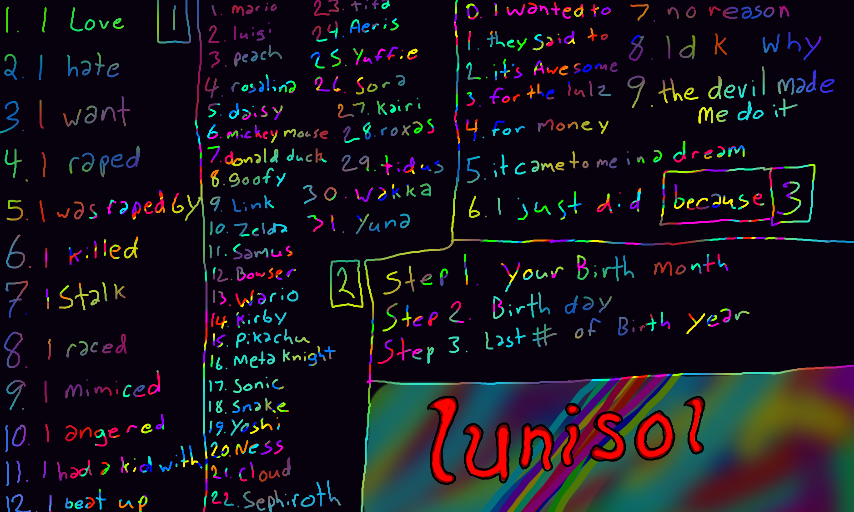 1. I Love
1
2. I hate
3. I want
4. I raped
5. I was raped by
6. I killed
7 I Stalk
8 I raced
9 I mimiced
10. I angered
11. I had a kid with
12. I beat up
1. mario
2. luigi
3. peach
4. rosalina
5. daisy
6. mickey mouse
7. donald duck
8. goofy
9. Link
10. Zelda
11. Samus
12. Bowser
13. Wario
14. Kirby
15. Pikachu
16. Meta Knight
17. Sonic
18. Snake
19. Yoshi
20. Ness
21. Cloud
22. Sephiroth
23. tifa
24. Aeris
25. Yuffie
26. Sora
27. Kairi
28. roxas
29. tidus
30. Wakka
31. Yuna
2
0. I wanted to
1. they said to
2. it's Awesome
3. for the lulz
4. for money
5. it came to me in a dream
6. I just did
7. no reason
8. Id k why
9. the devil made
me do it
because 3
Step 1. Your Birth month
Step 2. Birth day
Step 3. Last # of Birth Year
lunisol